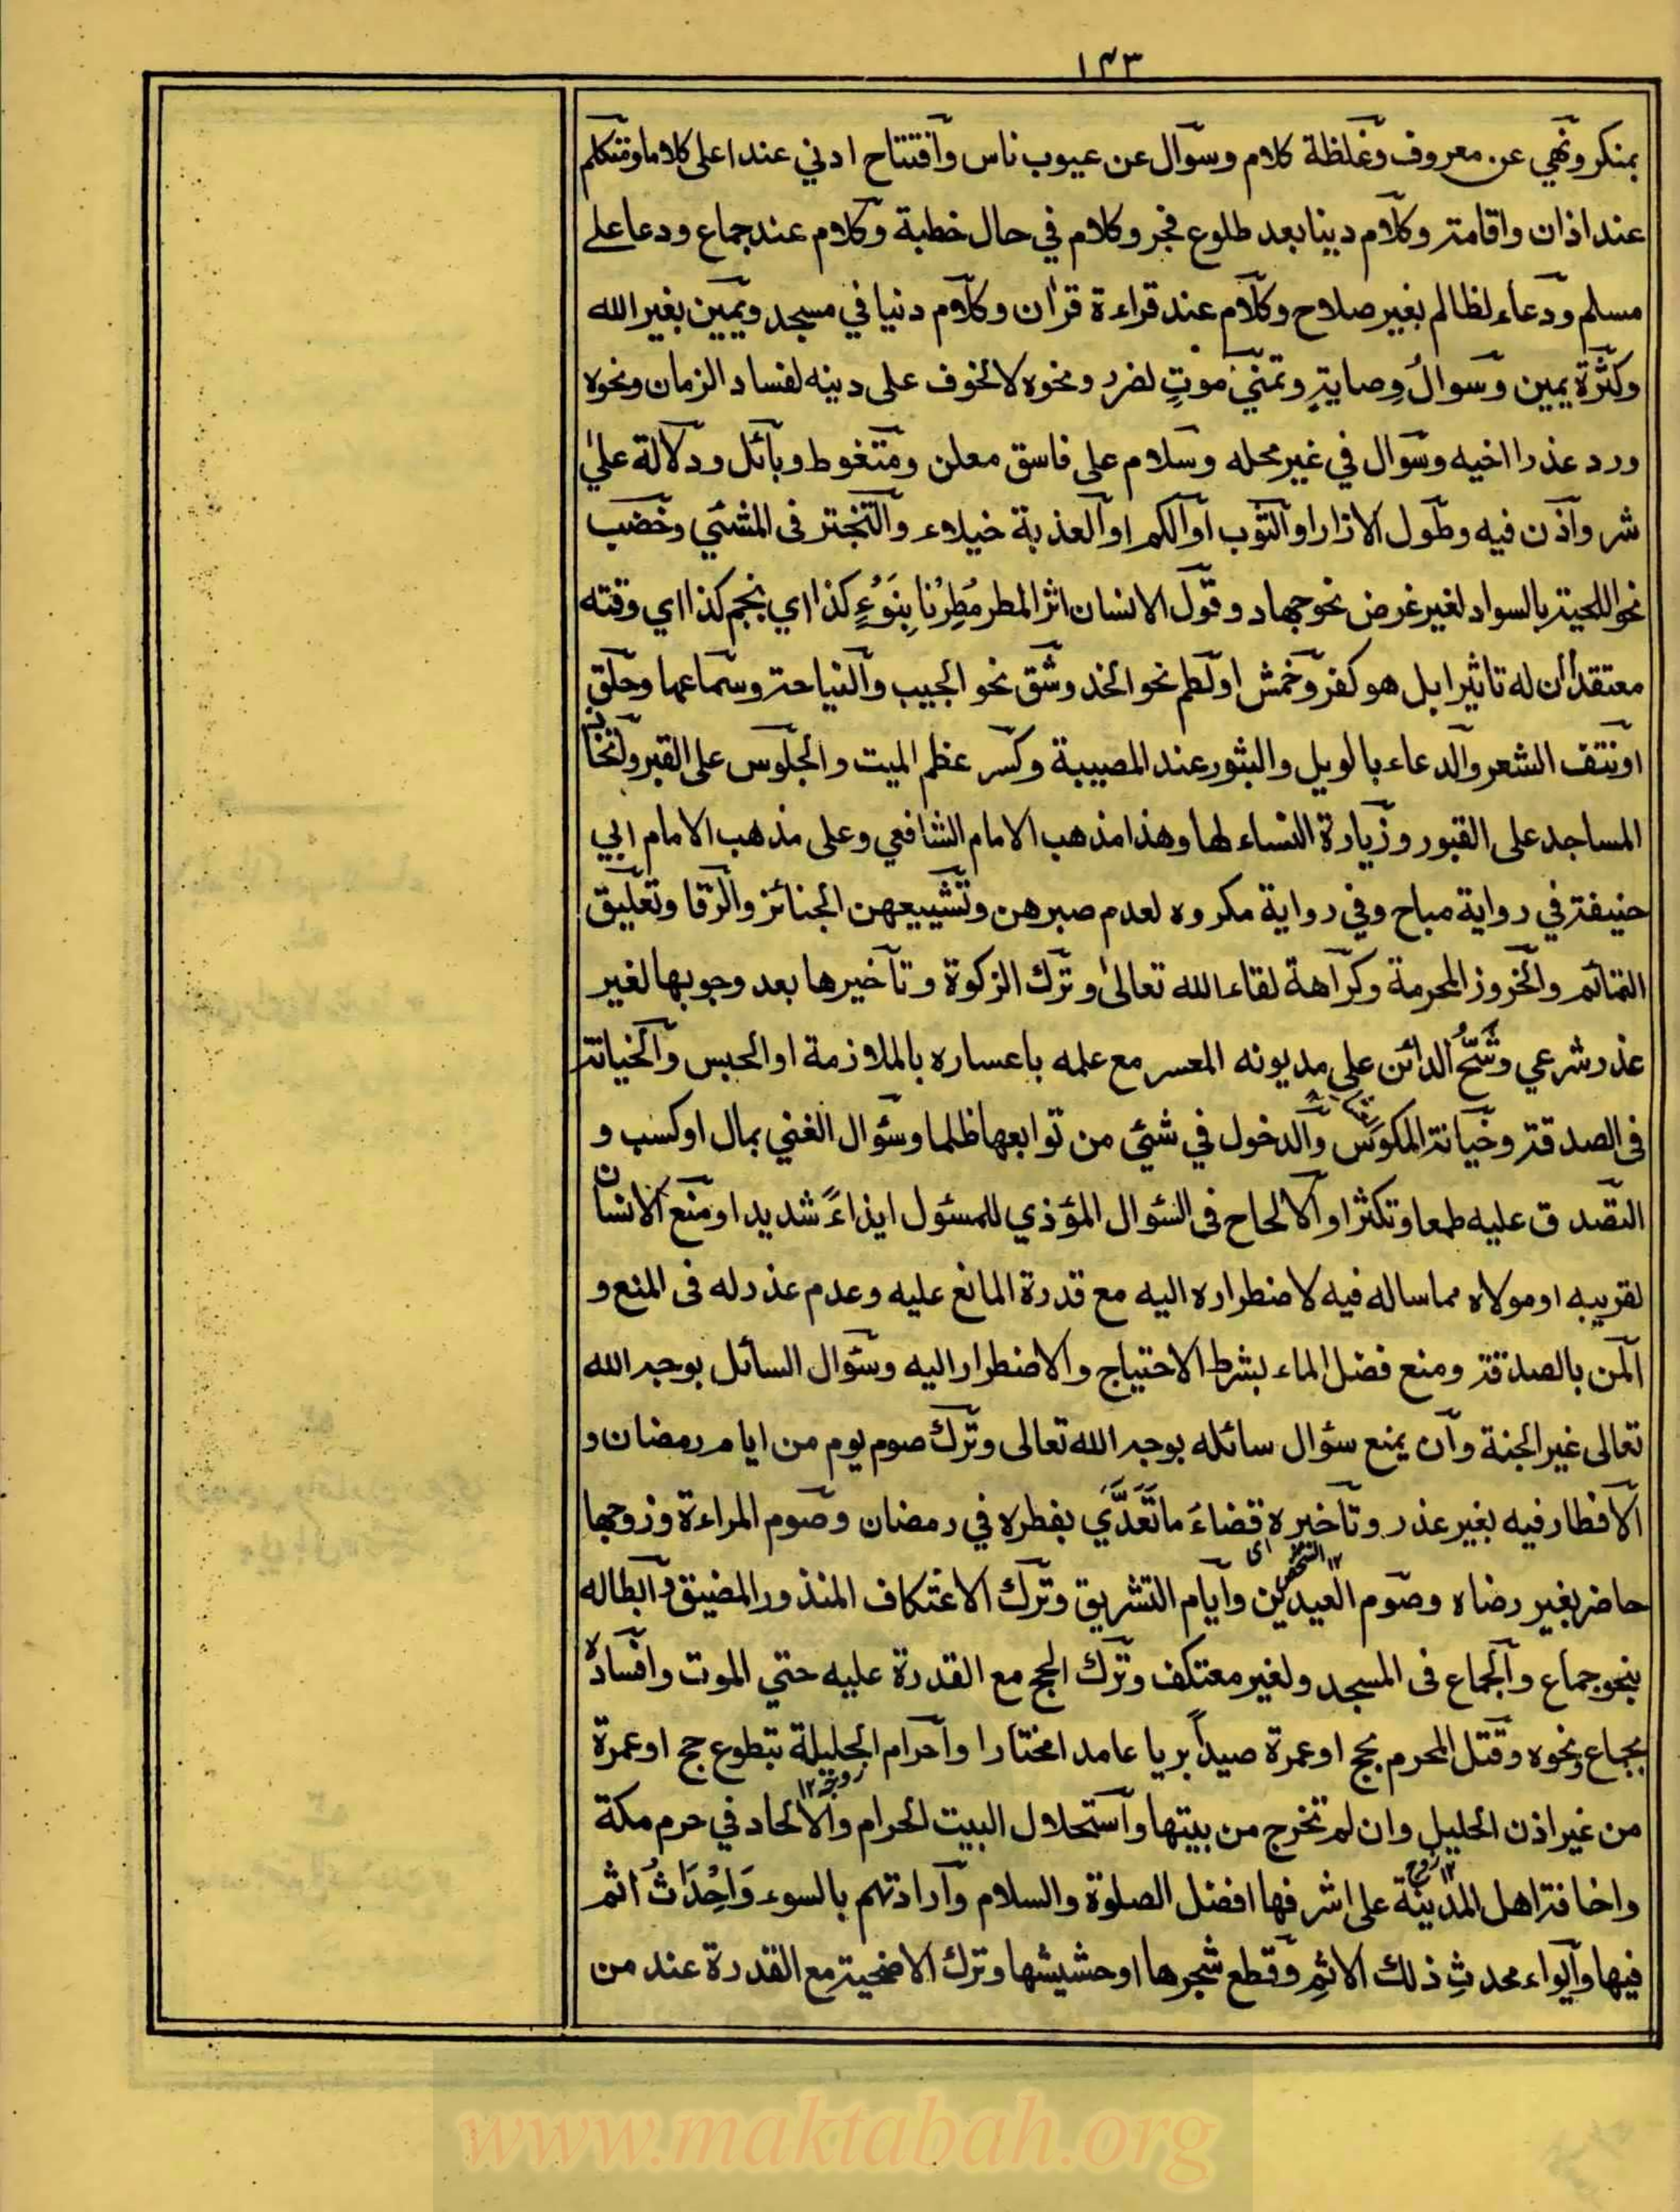 ١٤٣
بمنكر ونهي عن معروف وغلظة كلام وسوال عن عيوب ناس وافتتاح ادني عند اعلى كلاما وتكلم
عند اذان واقامة وكلام دينا بعد طلوع فجر وكلام في حال خطبة وكلام عند جماع ودعا على
مسلم ودعاء لظالم بغير صلاح وكلام عند قراءة قران وكلام دنيا في مسجد ويمين بغير الله
وكثرة يمين وسوال وصاية وتمني موت لضرر ونحوه لا لخوف على دينه لفساد الزمان ونحوه
ورد عذر اخيه وسوال في غير محله وسلام على فاسق معلن ومتغوط وبائل ودلالة على
شر واذن فيه وطول الازار او الثوب او الكم او العذبة خيلاء والتبختر فى المشي وخضب
نحو اللحية بالسواد لغير غرض نحو جهاد وقول الانسان اثر المطر مُطِرْنا بِنَوْءِ كذا اي بنجم كذا اي وقته
معتقدا ان له تاثيرا بل هو كفر وخمش او لطم نحو الخد وشق نحو الجيب والنياحة وسماعها وحلق
او نتف الشعر والدعاء بالويل والثبور عند المصيبة وكسر عظم الميت والجلوس على القبر واتخاذ
المساجد على القبور وزيارة النساء لها وهذا مذهب الامام الشافعي وعلى مذهب الامام ابي
حنيفة في رواية مباح وفي رواية مكروه لعدم صبرهن وتشييعهن الجنائز والرقا وتعليق
التمائم والخروز المحرمة وكراهة لقاء الله تعالى وترك الزكوة وتاخيرها بعد وجوبها لغير
عذر شرعي وشُحّ الدائن على مديونه المعسر مع علمه باعساره بالملازمة او الحبس والخيانة
فى الصدقة وخيانة المكوس والدخول في شئي من توابعها ظلما وسؤال الغني بمال او كسب و
التصدق عليه طمعا وتكثرا والالحاح فى السؤال المؤذي للمسئول ايذاءً شديدا ومنع الانسان
لقريبه او مولاه مما ساله فيه لاضطراره اليه مع قدرة المانع عليه وعدم عذر له فى المنع و
المن بالصدقة ومنع فضل الماء بشرط الاحتياج والاضطرار اليه وسؤال السائل بوجه الله
تعالى غير الجنة وان يمنع سؤال سائله بوجه الله تعالى وترك صوم يوم من ايام رمضان و
الافطار فيه بغير عذر وتاخيره قضاءَ ما تَعَدَّيَ بفطره في رمضان وصوم المراءة وزوجها
حاضر بغير رضاه وصوم العيدين وايام التشريق وترك الاعتكاف المنذور المضيق وابطاله
بنحو جماع والجماع فى المسجد ولغير معتكف وترك الحج مع القدرة عليه حتي الموت وافساده
بجماع ونحوه وقتل المحرم بحج او عمرة صيداً بريا عامدا مختارا واحرام الحليلة بتطوع حج او عمرة
زوجه ١٢
من غير اذن الحليل وان لم تخرج من بيتها واستحلال البيت الحرام والالحاد في حرم مكة
زوج ١٢
واخافة اهل المدينة على اشرفها افضل الصلوة والسلام وارادتهم بالسوء وَاحْدَاثُ اثم
فيها وايواء محدثِ ذلك الاثمِ وقطع شجرها او حشيشها وترك الاضحية مع القدرة عند من
www.maktabah.org